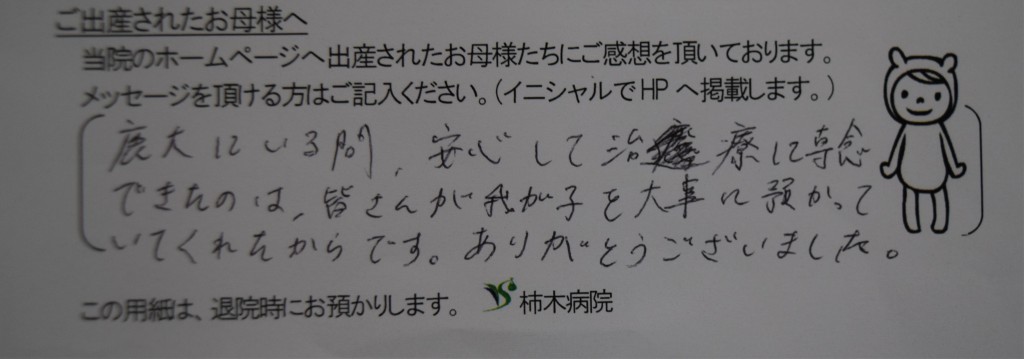 ご出産されたお母様へ
当院のホームページへ出産されたお母様たちにご感想を頂いております。
メッセージを頂ける方はご記入ください。（イニシャルでHPへ掲載します。）
鹿大にいる間、安心して治療に専念
できたのは、皆さんが我が子を大事に預かって
いてくれたからです。ありがとうございました。
この用紙は、退院時にお預かりします。 柿木病院